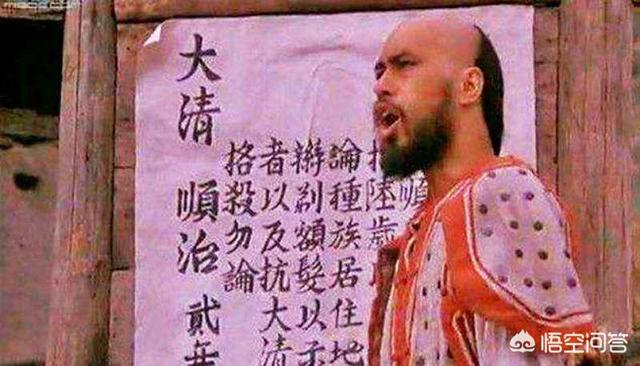 順
陸歲
論種族居住地
辮剃額髮以示
者以反抗大清
格殺勿論
大清 順治 貳年
悟空问答